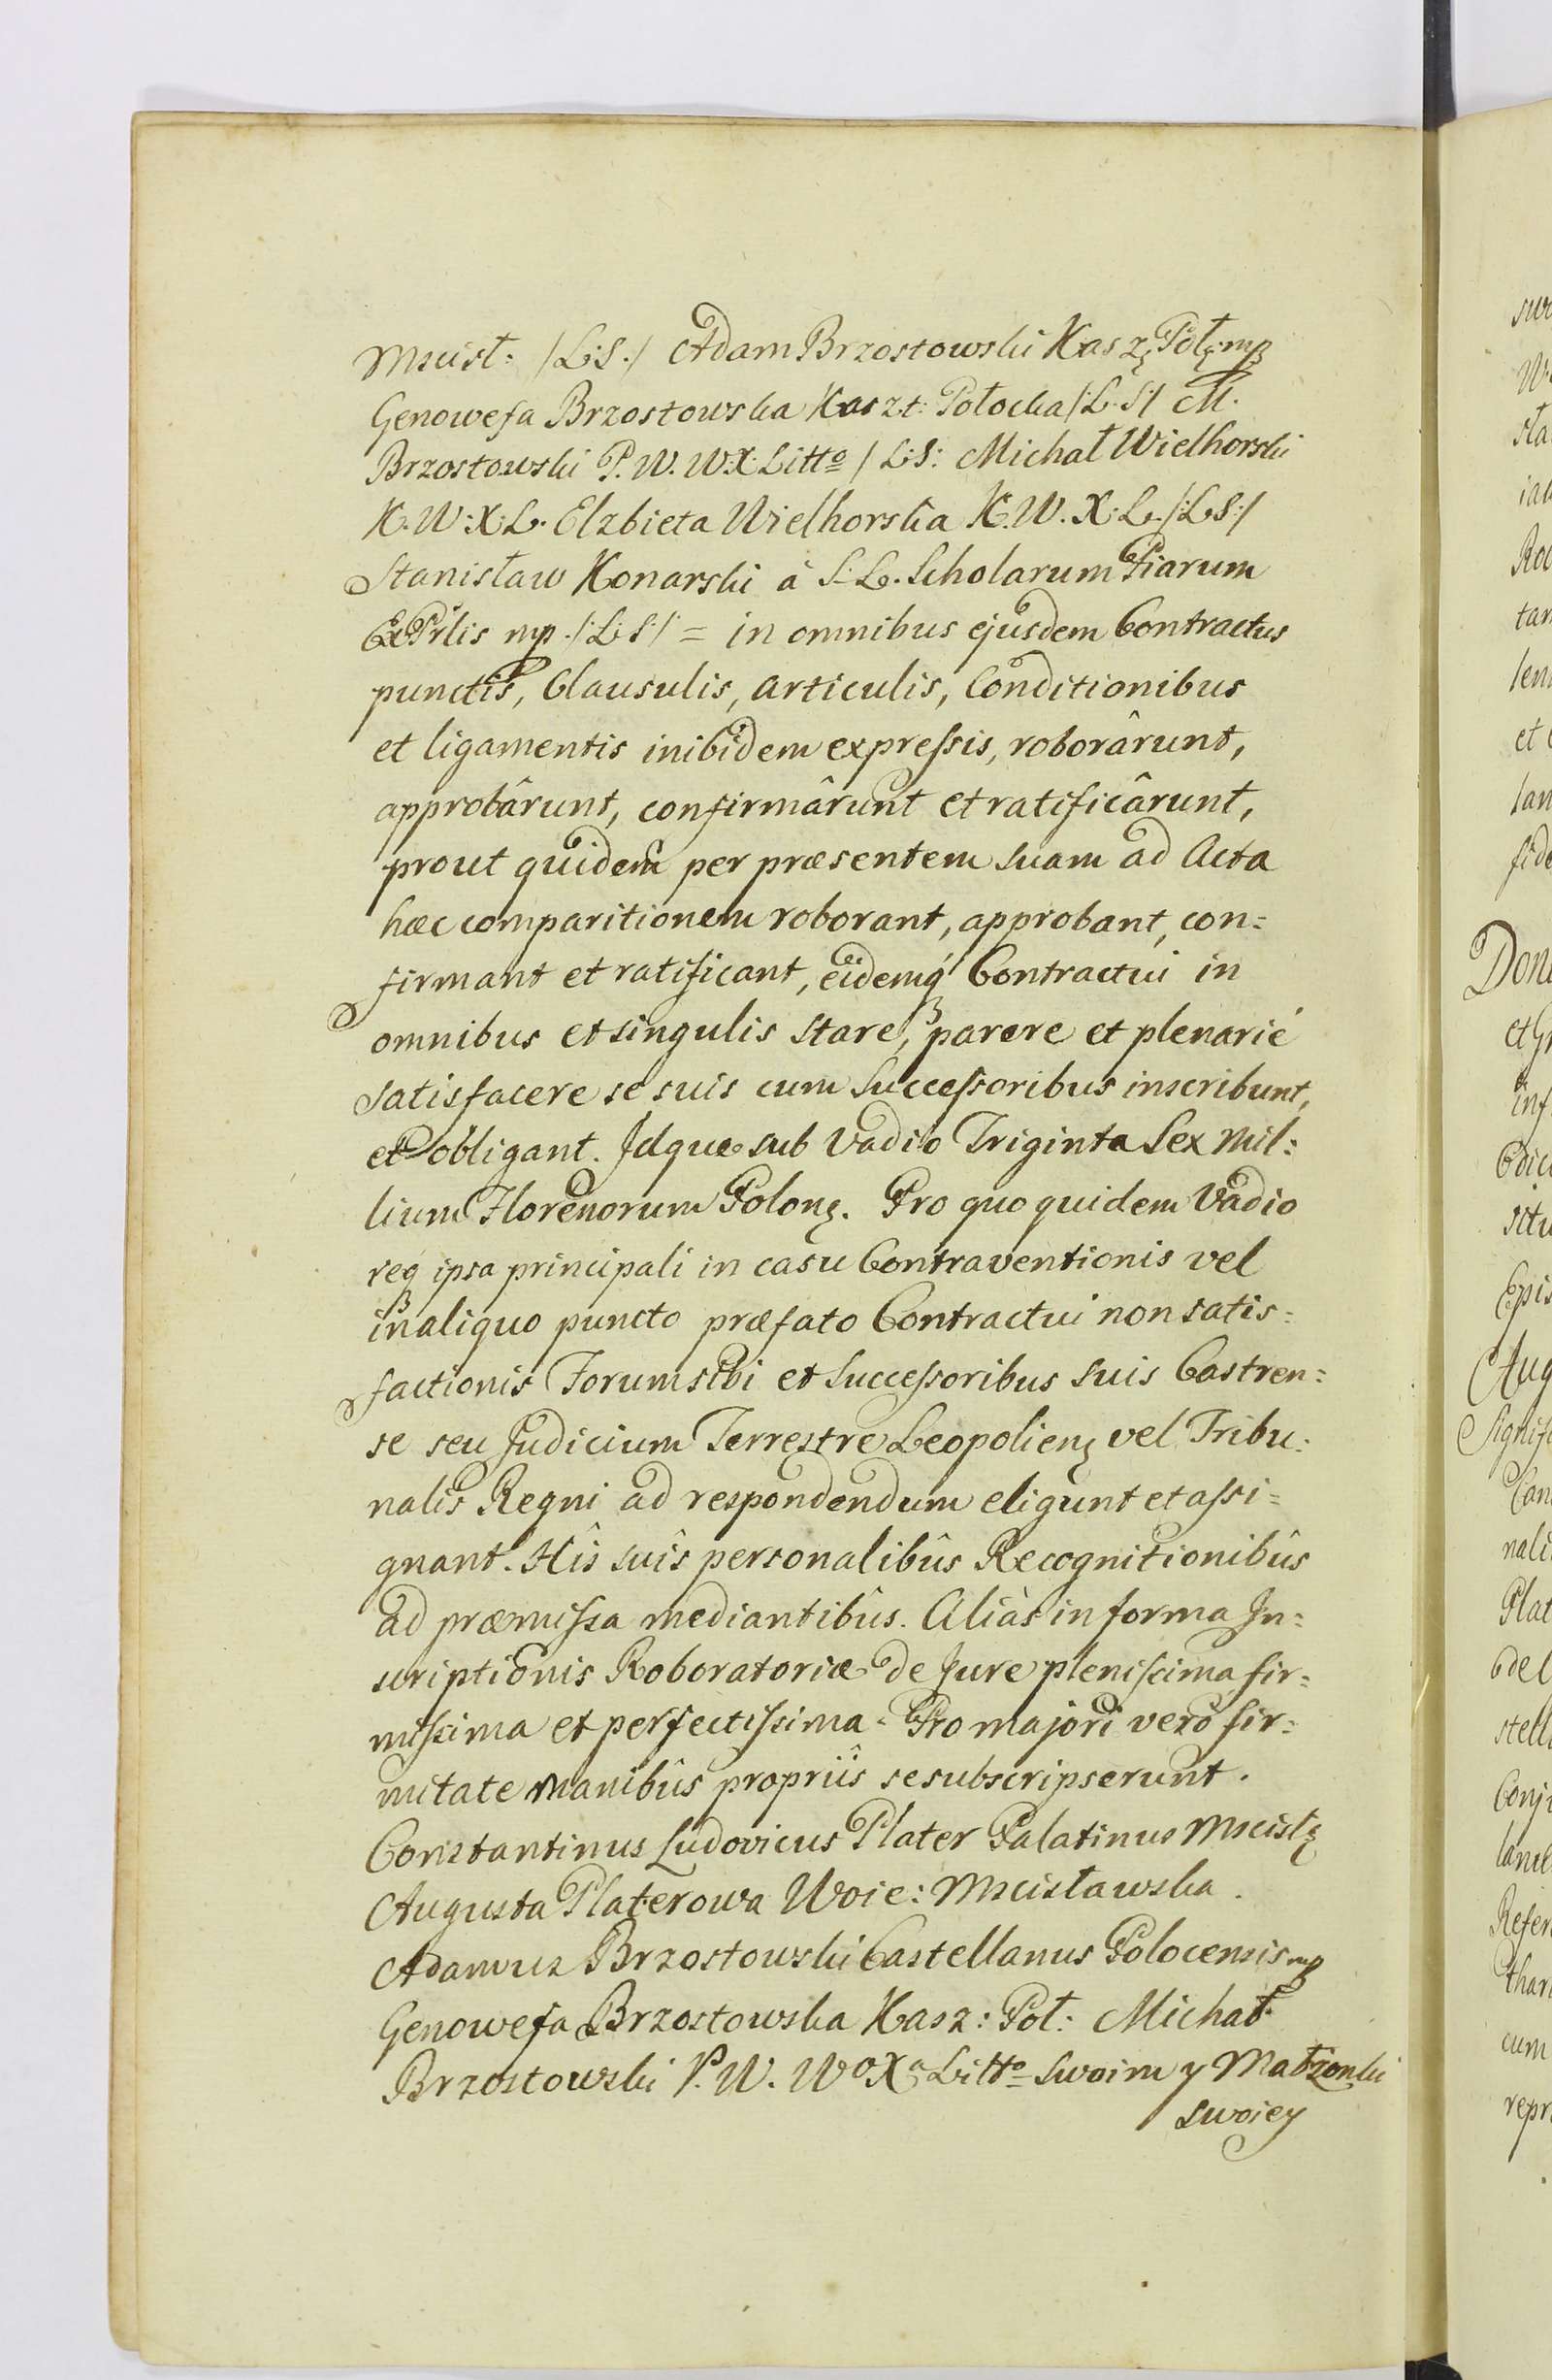 Mscisł: /L:S:/ Adam Brzostowski Kasz: Poł: mp
Genowefa Brzostowska Kaszt: Połocka /:L:S:/ M.
Brzostowski P. W. W:X: Litto / L:S: Michał Wielhorski
K. W: X: L. Elzbieta Wielhorska K. W. X: L. /:L:S:/
Stanisław Konarski à S: L. Scholarum Piarum
ExPrlis mp. /:L:S:/ = in omnibus ejusdem Contractus
punctis, Clausulis, articulis, Conditionibus
et ligamentis inibidem expressis, roborârunt,
approbârunt, confirmârunt et ratificârunt,
prout quidem per præsentem suam ad Acta
hæc comparitionem roborant, approbant, con=
firmant et ratificant, eidemq; Contractui in
omnibus et singulis stare, parere et plenarié
satisfacere se suis cum Successoribus inscribunt,
et obligant. Idque sub Vadio Triginta Sex Mil=
lium Florenorum Polon: Pro quo quidem Vadio
req; ipsa principali in casu Contraventionis vel
in aliquo puncto præfato Contractui non satis=
factionis Forum sibi et Successoribus suis Castren=
se seu Judicium Terrestre Leopolien: vel Tribu=
nalis Regni ad respondendum eligunt et assi=
gnant. Hîs suîs personalibûs Recognitionibûs
ad præmissa mediantibûs. Aliàs in forma In=
scriptionis Roboratoriæ de Jure plenissima fir=
missima et perfectissima. Pro majori verò fir=
mitate Manibûs propriîs se subscripserunt.
Constantinus Ludovicus Plater Palatinus Mscisł:
Augusta Platerowa Woie: Mscisławska.
Adamus Brzostowski Castellanus Polocensis mp
Genowefa Brzostowska Kasz: Poł: Michał
Brzostowski P. W. Wo Xa Litto Swoim y Małzonki
swoiey